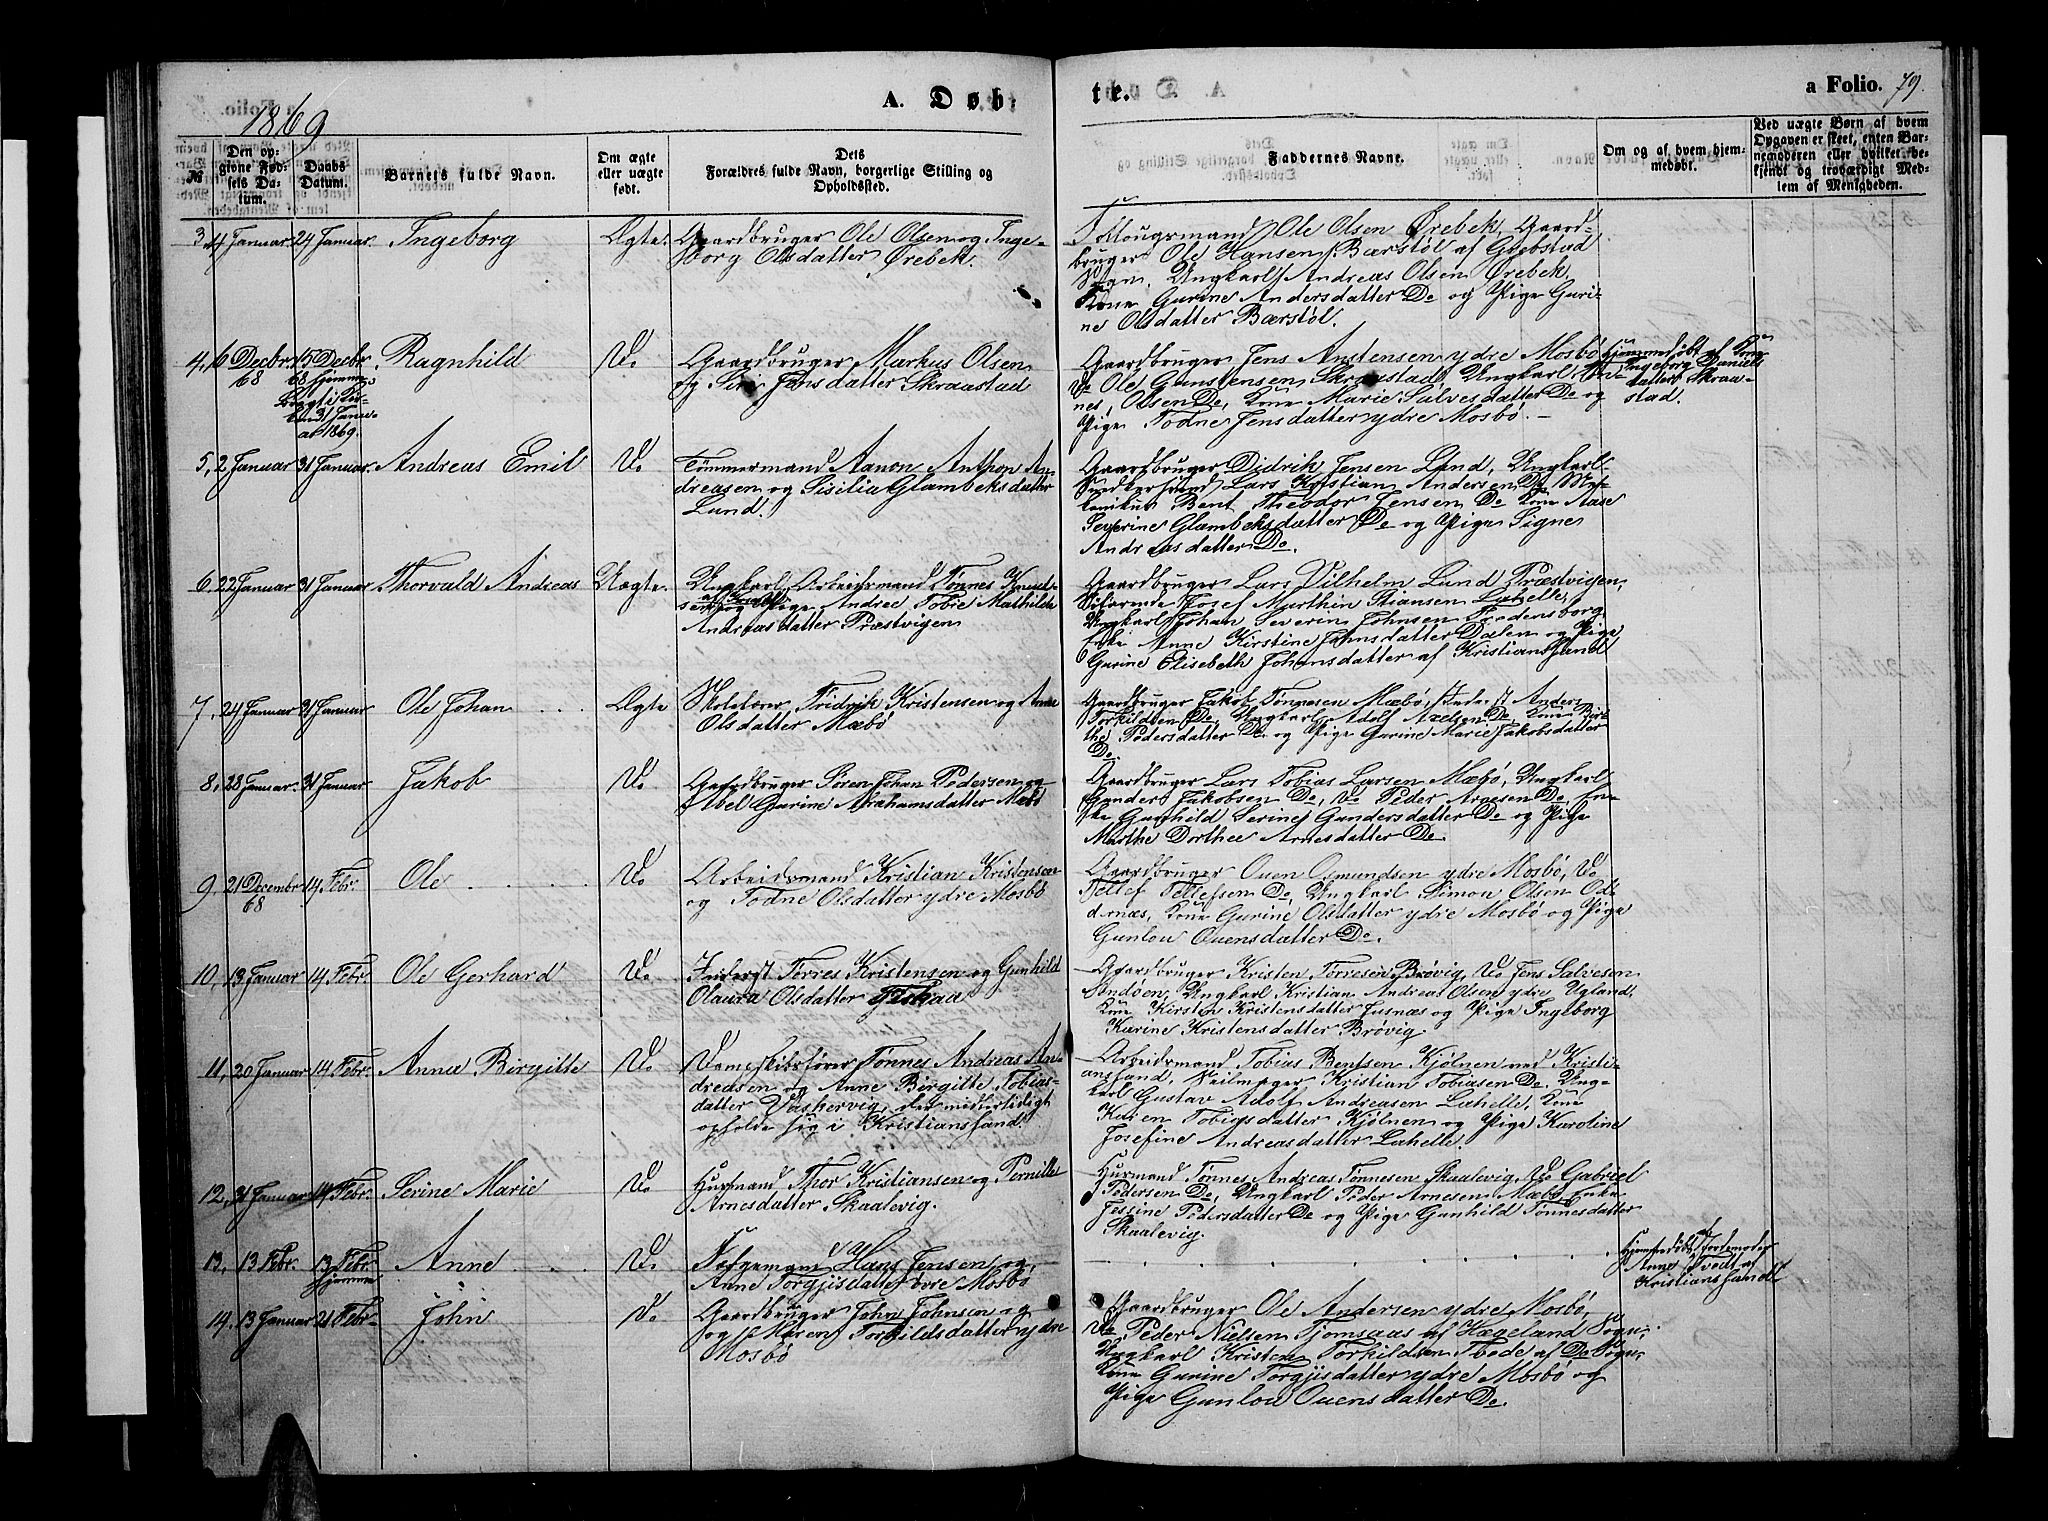 1869
A. Døbte.
a Folio. 79.
№
Den opgivne Fødsels Datum.
Daabs Datum.
Barnets fulde Navn.
Om ægte eller uægte født.
Dets Forældres fulde Navn, borgerlige Stilling og Opholdssted.
Faddernes Navne.
Om og af hvem hjemmedøbt.
Ved uægte Børn af hvem Opgaven er skeet, enten Barnemoderen eller hvilket bekjendt og troværdigt Medlem af Menigheden.
3. 4 Januar 24 Januar. Ingeborg Ægte.
Gaardbruger Ole Olsen og Inge-
borg Olsdatter Ørebek.
Ole Olsen Ørebek, Gaard-
bruger Ole Hansen Bærstøl af Grebstad
Sogn, Ungkarl Andreas Olsen Ørebek,
Kone Gurine Andersdatter Do og Pige Guri-
ne Olsdatter Bærstøl.
4. 6 Decbr. 68 15 Decbr. 68 hjemme Ragnhild Do
31 Janu-
ar 1869.
Gaardbruger Markus Olsen
og Sire Jensdatter Skraastad
Gaardbruger Jens Anstensen ydre Mosbø,
Do Ole Gunstensen Skraastad, Ungkarl
Olsen Do, Kone Marie Salvesdatter Do og
Pige Todne Jensdatter ydre Mosbø.
Hjemmedøbt af Kone
Ingeborg Daniels-
datter Skraa-
stad.
5, 2 Januar 31 Januar. Andreas Emil Do
Tømmermand Aanon Anthon An-
dreasen og Sisilia Glambeksdatter
Lund.
Gaardbruger Didrik Jensen Lund, Ungkarl
Snedkersvend Lars Kristian Andersen Do
Bent Theodor Jensen Do Kone Aase
Severine Glambeksdatter Do og Pige Signe
Andreasdatter Do.
6. 22 Januar 31 Januar Thorvald Andreas Uægte.
Ungkarl Arbeidsmand Tønnes Knud-
sen og Pige Andrea Tobie Mathilde
Andreasdatter Præstvigen
Gaardbruger Lars Vilhelm Lund Præstvigen,
Søfarende Josef Marthin Stiansen Lahelle,
Ungkarl Johan Severin Johnsen Fredensborg
Enke Anne Kirstine Jahnsdatter Dalen og Pige
Gurine Elisebeth Johansdatter af Kristianssand
7. 24 Januar 31 Januar Ole Johan Ægte
Skolelærer Fridrik Kristensen og Anne
Olsdatter Mæbø
Gaardbruger Jakob Tønnesen Mæbø, Inderst Anders
Torkildsen Do, Ungkarl Adolf Axelsen Do, Kone Bir-
the Pedersdatter Do og Pige Gurine Marie Jakobsdatter
Do
8, 28 Januar 31 Januar Jakob Do
Gaardbruger Søren Johan Pedersen og
Abel Gurine Abrahamsdatter Mæbø
Gaardbruger Lars Tobias Larsen Mæbø, Ungkarl
Gunder Jakobsen Do, Do Peder Arnesen Do, En-
ke Gunhild Serine Gundersdatter Do og Pige
Marthe Dorthea Arnesdatter Do
9, 21 Decembr 68 14 Febr. Ole Do
Arbeidsmand Kristian Kristensen
og Todne Olsdatter ydre Mosbø
Gaardbruger Ouen Osmundsen ydre Mosbø, Do
Tellef Tellefsen Do, Ungkarl Simon Olsen Od-
dernæs, Kone Gurine Olsdatter ydre Mosbø og Pige
Gunlou Ouensdatter Do.
10, 13 Januar 14 Febr. Ole Gerhard Do
Inderst Terres Kristensen og Gunhild
Olaura Olsdatter Fiskaa
Gaardbruger Kristen Tørresen Brøvig, Do Jens Salvesen
Andøen, Ungkarl Kristian Andreas Olsen ydre Ugland,
Kone Kirsten Kristensdatter Jusnæs og Pige Ingeborg
Karine Kristensdatter Brøvig.
11, 20 Januar 14 Febr. Anna Birgitte Do
Dampskibsfører Tønnes Andreas An-
dreasen og Anne Birgitte Tobias-
datter Vaskervig, der midlertidigt
opholde sig i Kristianssand
Arbeidsmand Tobias Bentsen Kjølnen ved Kristi-
anssand, Seilmager Kristian Tobiasen Do, Ung-
karl Gustav Adolf Andreasen Lahelle, Kone
Karen Tobiasdatter Kjølnen og Pige Karoline
Josefine Andreasdatter Lahelle.
12, 31 Januar 14 Febr. Serine Marie Do
Husmand Thor Kristiansen og Pernille
Arnesdatter Skaalevig.
Husmand Tønnes Andreas Tønnesen Skaalevig, Do Gabriel
Pedersen Do, Ungkarl Peder Arnesen Mæbø, Enke
Jessine Pedersdatter Do og Pige Gunhild Tønnesdatter
Skaalevig.
13. 13 Febr. 13 Febr. hjemme Anne Do
Hans Jensen og
Anne Torgjisdatter øvre Mosbø
Hjemmedøbt af Jordemoder
Anne Tvedt af
Kristianssand
14. 13 Januar 21 Febr. John Do
Gaardbruger John Johnsen og
Karen Torkildsdatter ydre
Mosbø
Gaardbruger Ole Andersen ydre Mosbø,
Do Peder Nielsen Tjomsaas af Hægeland Sogn,
Ungkarl Kristen Torkildsen Tvede af Do Sogn,
Kone Gurine Torgjisdatter ydre Mosbø og
Pige Gunlou Ouensdatter Do.